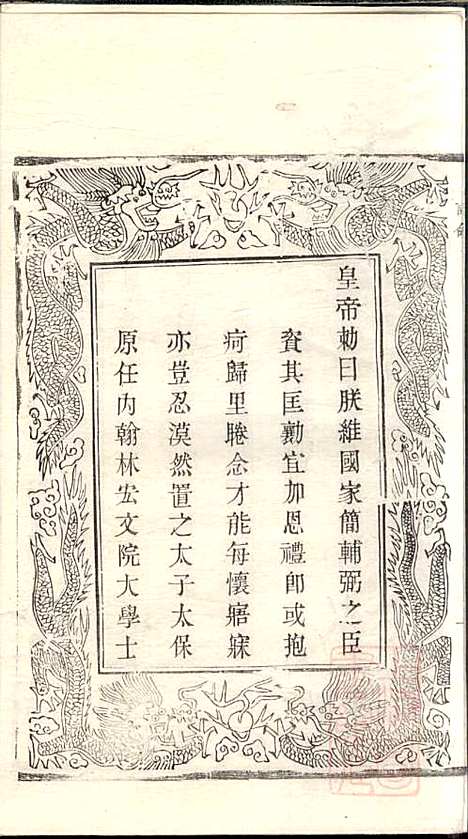 皇帝勅曰朕維國家簡輔弼之臣
賚其匡勷宜加恩禮卽或抱
疴歸里睠念才能每懷寤寐
亦豈忍漠然置之太子太保
原任内翰林宏文院大學士